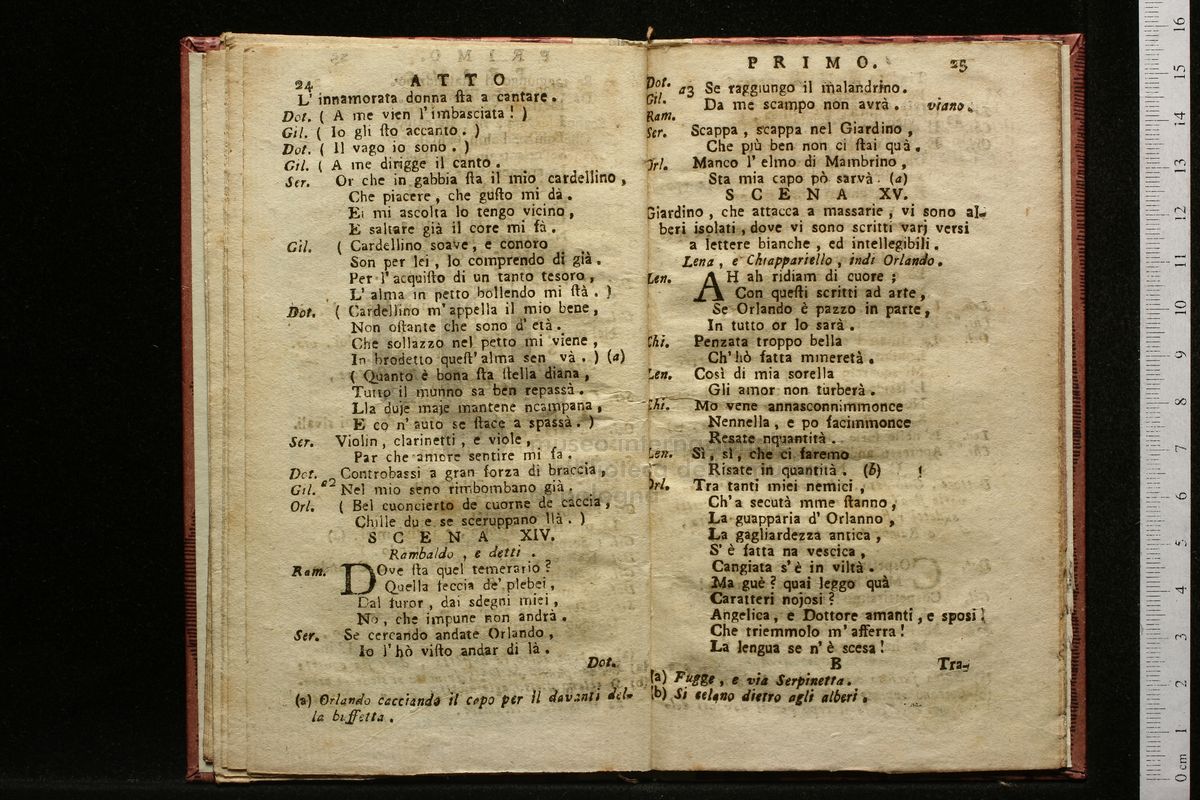 24 ATTO
L' innamorata donna ſta a cantare.
Dot. ( A me vien l'imbasciata! )
Gil. ( Io gli ſto accanto. )
Dot. ( Il vago io sono. )
Gil. ( A me dirigge il canto.
Ser. Or che in gabbia ſta il mio cardellino,
Che piacere, che guſto mi dà.
Ei mi ascolta lo tengo vicino,
E saltare già il core mi fà.
Gil. ( Cardellino soave, e conoro
Son per lei, lo comprendo di già.
Per l'acquiſto di un tanto tesoro,
L'alma in petto bollendo mi ſtà. )
Dot. ( Cardellino m'appella il mio bene,
Non oſtante che sono d'età.
Che sollazzo nel petto mi viene,
In brodetto queſt'alma sen và. ) (a)
( Quanto è bona ſta ſtella diana,
Tutto il munno sa ben repassà.
Lla duje maje mantene ncampana,
E co n'auto se ſtace a spassà. )
Ser. Violin, clarinetti, e viole,
Par che amore sentire mi fa.
Dot. Controbassi a gran forza di braccia,
Gil. a2 Nel mio seno rimbombano già.
Orl. ( Bel cuoncierto de cuorne de caccia,
Chille due se sceruppano llà. )
SCENA XIV.
Rambaldo, e detti.
Ram. DOve ſta quel temerario?
Quella feccia de' plebei,
Dal furor, dai sdegni miei,
No, che impune non andrà.
Ser. Se cercando andate Orlando,
Io l'hò viſto andar di là.
Dot.
(a) Orlando cacciando il capo per il davanti del-
la buffetta.
PRIMO. 25
Dot. Gil. Ram. a3 Se raggiungo il malandrino.
Da me scampo non avrà. viano.
Ser. Scappa, scappa nel Giardino,
Che più ben non ci ſtai quà.
Orl. Manco l'elmo di Mambrino,
Sta mia capo pò sarvà. (a)
SCENA XV.
Giardino, che attacca a massarie, vi sono al-
beri isolati, dove vi sono scritti varj versi
a lettere bianche, ed intellegibili.
Lena, e Chiappariello, indi Orlando.
Len. AH ah ridiam di cuore;
Con queſti scritti ad arte,
Se Orlando è pazzo in parte,
In tutto or lo sarà.
Chi. Penzata troppo bella
Ch'hò fatta mmeretà.
Len. Così di mia sorella
Gli amor non turberà.
Chi. Mo vene annasconnimmonce
Nennella, e po facimmonce
Resate nquantità.
Len. Sì, sì, che ci faremo
Risate in quantità. (b)
Orl. Tra tanti miei nemici,
Ch'a secutà mme ſtanno,
La guapparia d'Orlanno,
La gagliardezza antica,
S'è fatta na vescica,
Cangiata s'è in viltà.
Ma guè? quai leggo quà
Caratteri nojosi?
Angelica, e Dottore amanti, e sposi!
Che triemmolo m'afferra!
La lengua se n'è scesa!
B Tra-
(a) Fugge, e via Serpinetta.
(b) Si celano dietro agli alberi.
0 cm 1 2 3 4 5 6 7 8 9 10 11 12 13 14 15 16